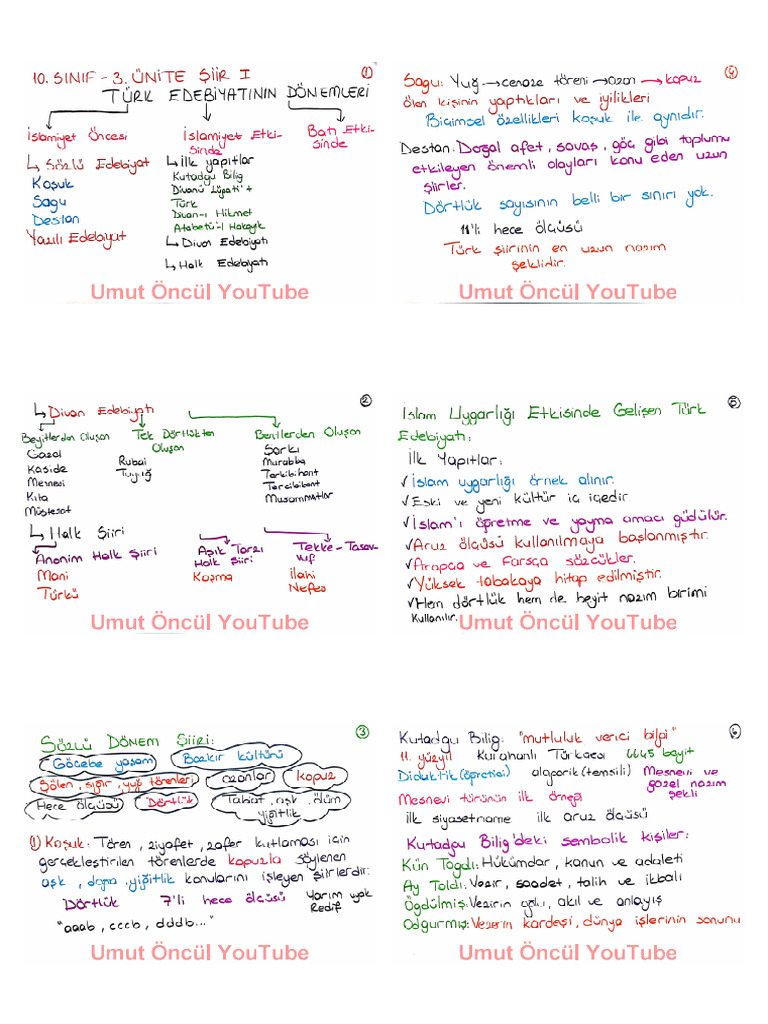 ①
10. SINIF - 3. ÜNİTE ŞİİR I
TÜRK EDEBİYATININ DÖNEMLERİ
İslamiyet Öncesi
↳ Sözlü Edebiyat
Koşuk
Sagu
Destan
Yazılı Edebiyat
İslamiyet Etki-
sinde
↳ İlk yapıtlar
Kutadgu Bilig
Divanü Lügati't
Türk
Divan-ı Hikmet
Atabetü'l Hakayık
↳ Divan Edebiyatı
↳ Halk Edebiyatı
Batı Etki-
sinde
Umut Öncül YouTube
②
↳ Divan Edebiyatı
Beyitlerden Oluşan
Gazel
Kaside
Mesnevi
Kıta
Müstezat
Tek Dörtlükten
Oluşan
Rubai
Tuyuğ
Bentlerden Oluşan
Şarkı
Murabba
Terkibibent
Terciibent
Musammatlar
↳ Halk Şiiri
Anonim Halk Şiiri
Mani
Türkü
Aşık Tarzı
Halk Şiiri
Koşma
Tekke-Tasav-
vuf
İlahi
Nefes
Umut Öncül YouTube
③
SÖZLÜ DÖNEM ŞİİRİ:
Göçebe yaşam
Bozkır kültürü
Şölen, sığır, yuğ törenleri
ozanlar
kopuz
Hece ölçüsü
Dörtlük
Tabiat, aşk, ölüm
yiğitlik
① Koşuk: Tören, ziyafet, zafer kutlaması için
gerçekleştirilen törenlerde kopuzla söylenen
aşk, doğa, yiğitlik konularını işleyen şiirlerdir.
Dörtlük 7'li hece ölçüsü Yarım uyak
Redif
"aaab, cccb, dddb..."
Umut Öncül YouTube
④
Sagu: Yuğ → cenaze töreni → ozan → kopuz
ölen kişinin yaptıkları ve iyilikleri
Biçimsel özellikleri koşuk ile aynıdır.
Destan: Doğal afet, savaş, göç gibi toplumu
etkileyen önemli olayları konu eden uzun
şiirler.
Dörtlük sayısının belli bir sınırı yok.
11'li hece ölçüsü
Türk şiirinin en uzun nazım
şeklidir.
Umut Öncül YouTube
⑤
İslam Uygarlığı Etkisinde Gelişen Türk
Edebiyatı:
İlk Yapıtlar:
✓İslam uygarlığı örnek alınır.
✓Eski ve yeni kültür iç içedir.
✓İslam'ı öğretme ve yayma amacı güdülür.
✓Aruz ölçüsü kullanılmaya başlanmıştır.
✓Arapça ve Farsça sözcükler.
✓Yüksek tabakaya hitap edilmiştir.
✓Hem dörtlük hem de beyit nazım birimi
kullanılır.
Umut Öncül YouTube
⑥
Kutadgu Bilig: "mutluluk verici bilgi"
11. yüzyıl Karahanlı Türkçesi 6645 beyit
Didaktik (öğretici) alegorik (temsili) Mesnevi ve
gazel nazım
şekli
Mesnevi türünün ilk örneği
ilk siyasetname ilk aruz ölçüsü
Kutadgu Bilig'deki sembolik kişiler:
Kün Togdı: Hükümdar, kanun ve adaleti
Ay Toldı: Vezir, saadet, talih ve ikbali
Ögdülmiş: Vezirin oğlu, akıl ve anlayış
Odgurmış: Vezirin kardeşi, dünya işlerinin sonunu
Umut Öncül YouTube